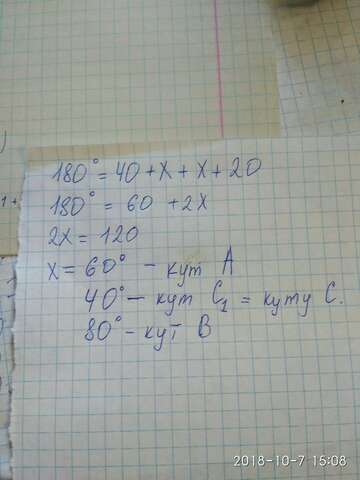 180° = 40 + x + x + 20
180° = 60 + 2x
2x = 120
x = 60° - кут A
40° - кут C₁ = куту C.
80° - кут B
2018-10-7 15:08